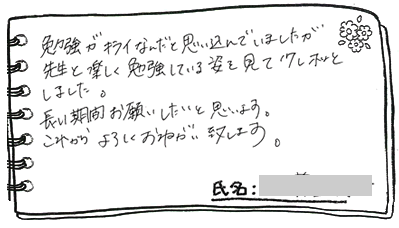 勉強がキライなんだと思い込んでいましたが
先生と楽しく勉強している姿を見て少しホッと
しました。
長い期間お願いしたいと思います。
これからよろしくおねがい致します。
氏名: